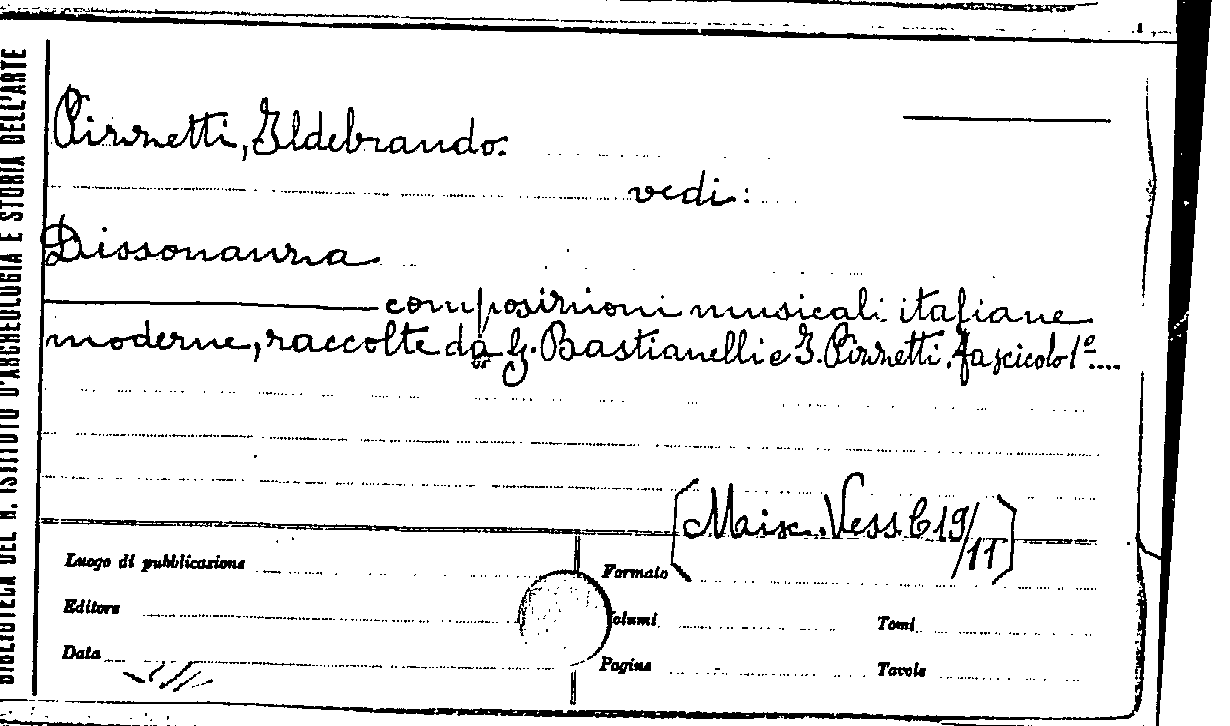 BIBLIOTECA DEL R. ISTITUTO D'ARCHEOLOGIA E STORIA DELL'ARTE
Pizzetti, Ildebrando.
vedi:
Dissonanza
composizioni musicali italiane
moderne, raccolte da G. Bastianelli e I. Pizzetti. fascicolo 1º....
[Misc. Vess. C 19/11]
Luogo di pubblicazione
Formato
Editore
Volumi
Tomi
Data
Pagine
Tavole